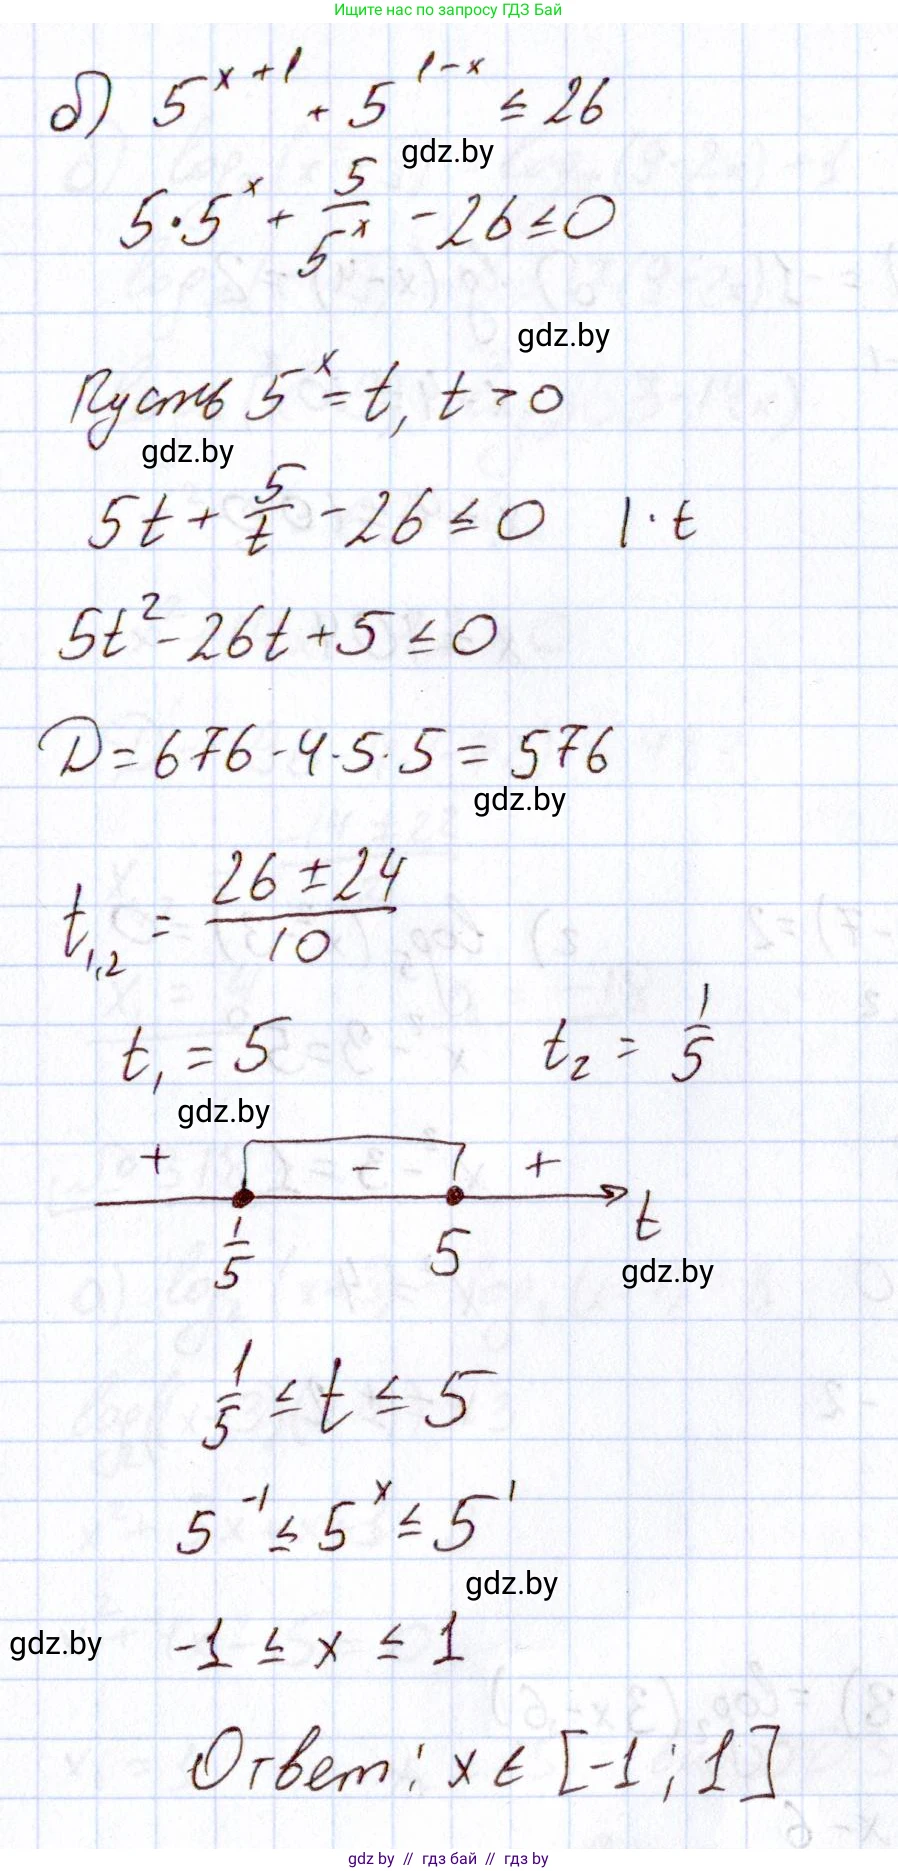 Ищите нас по запросу ГДЗ Бай
б) 5^(x+1) + 5^(1-x) ≤ 26
gdz.by
5·5^x + 5/5^x - 26 ≤ 0
gdz.by
Пусть 5^x = t, t > 0
gdz.by
5t + 5/t - 26 ≤ 0 | · t
5t² - 26t + 5 ≤ 0
D = 676 - 4·5·5 = 576
gdz.by
t₁,₂ = (26 ± 24)/10
t₁ = 5 t₂ = 1/5
gdz.by
+ - +
1/5 5 t
gdz.by
1/5 ≤ t ≤ 5
5^-1 ≤ 5^x ≤ 5^1
gdz.by
gdz.by
-1 ≤ x ≤ 1
Ответ: x ∈ [-1; 1]
gdz by // гдз бай // гдз by